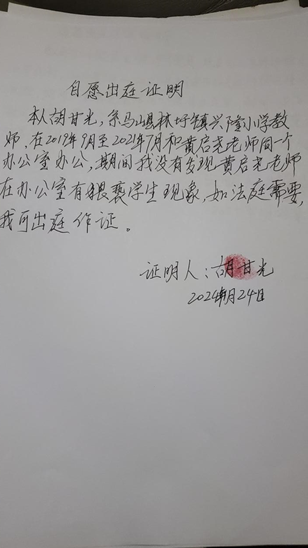 自愿出庭证明
本人胡甘光,系马山县林圩镇兴隆小学教
师,在2019年9月至2021年7月和黄启尧老师同一个
办公室办公,期间我没有发现黄启尧老师
在办公室有猥亵学生现象,如法庭需要,
我可出庭作证。
证明人:胡甘光
2024年月24日